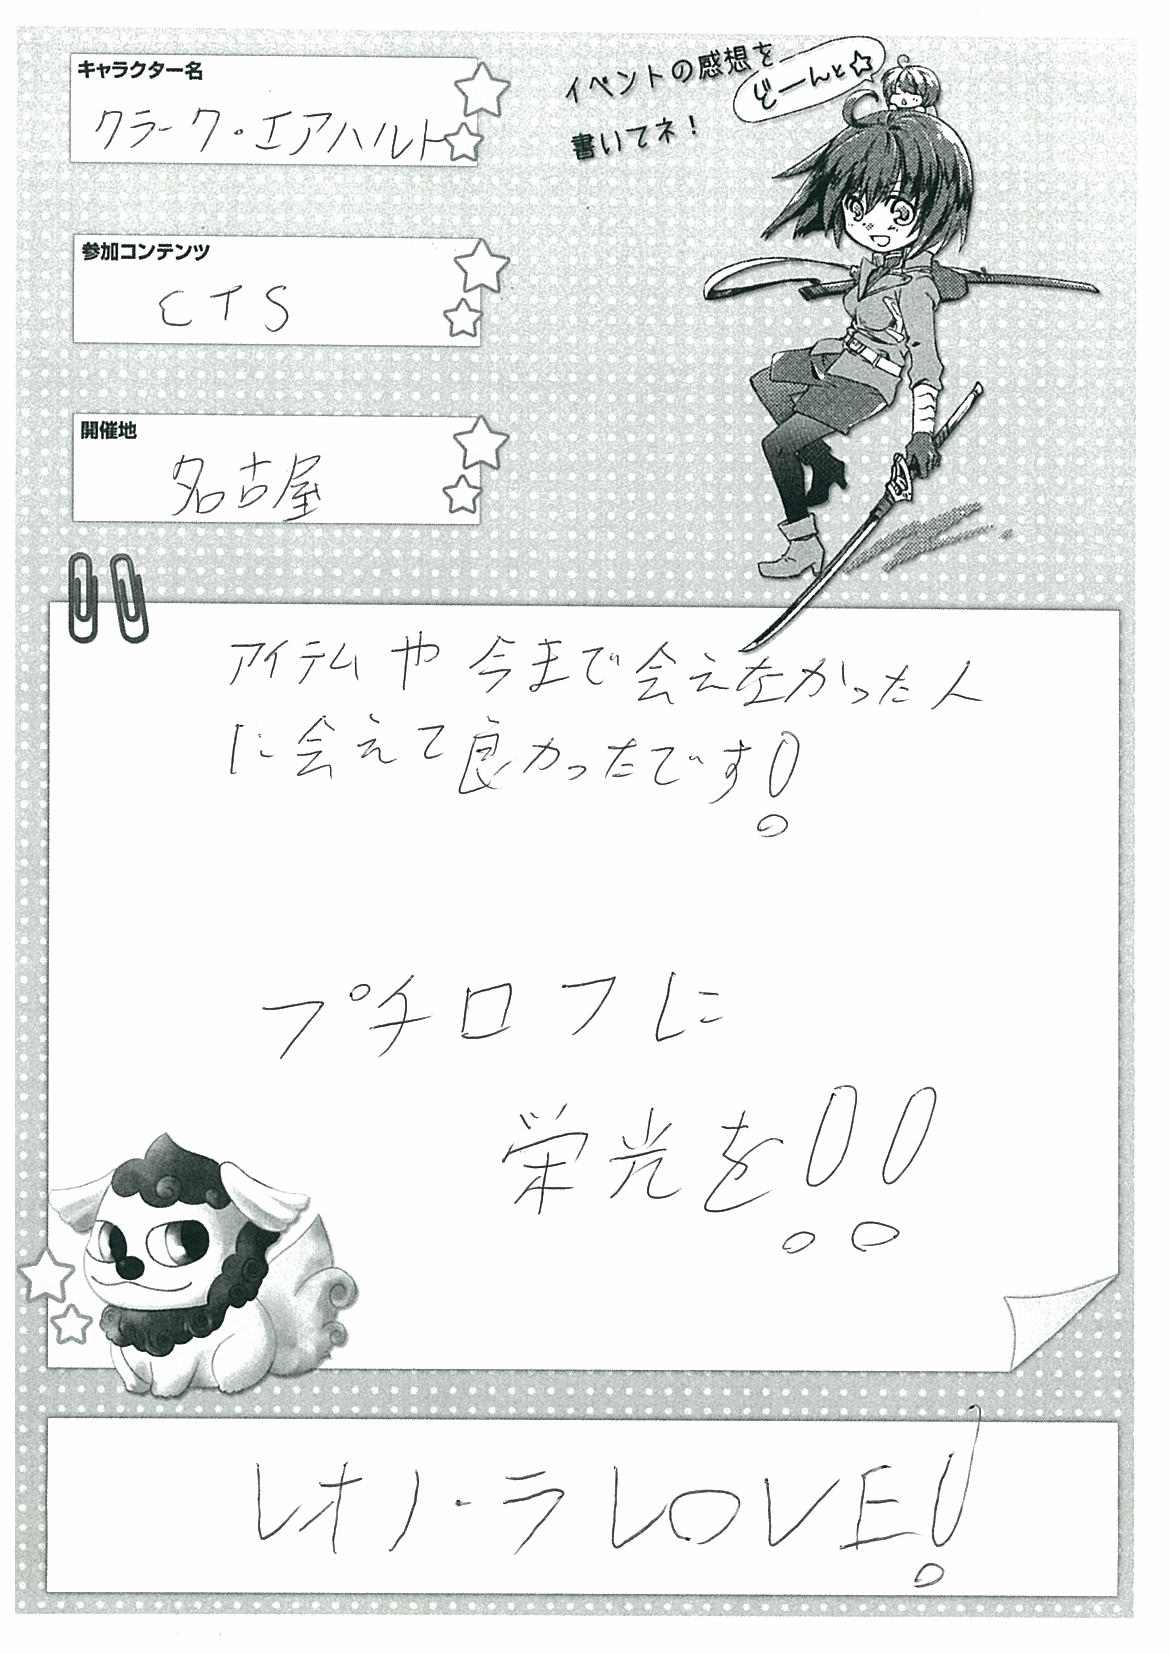 キャラクター名
クラーク・エアハルト
イベントの感想を
どーんと☆
書いてネ！
参加コンテンツ
CTS
開催地
名古屋
アイテムや今まで会えなかった人
に会えて良かったです!
プチロフに
栄光を!!
レオノ・ラLOVE!